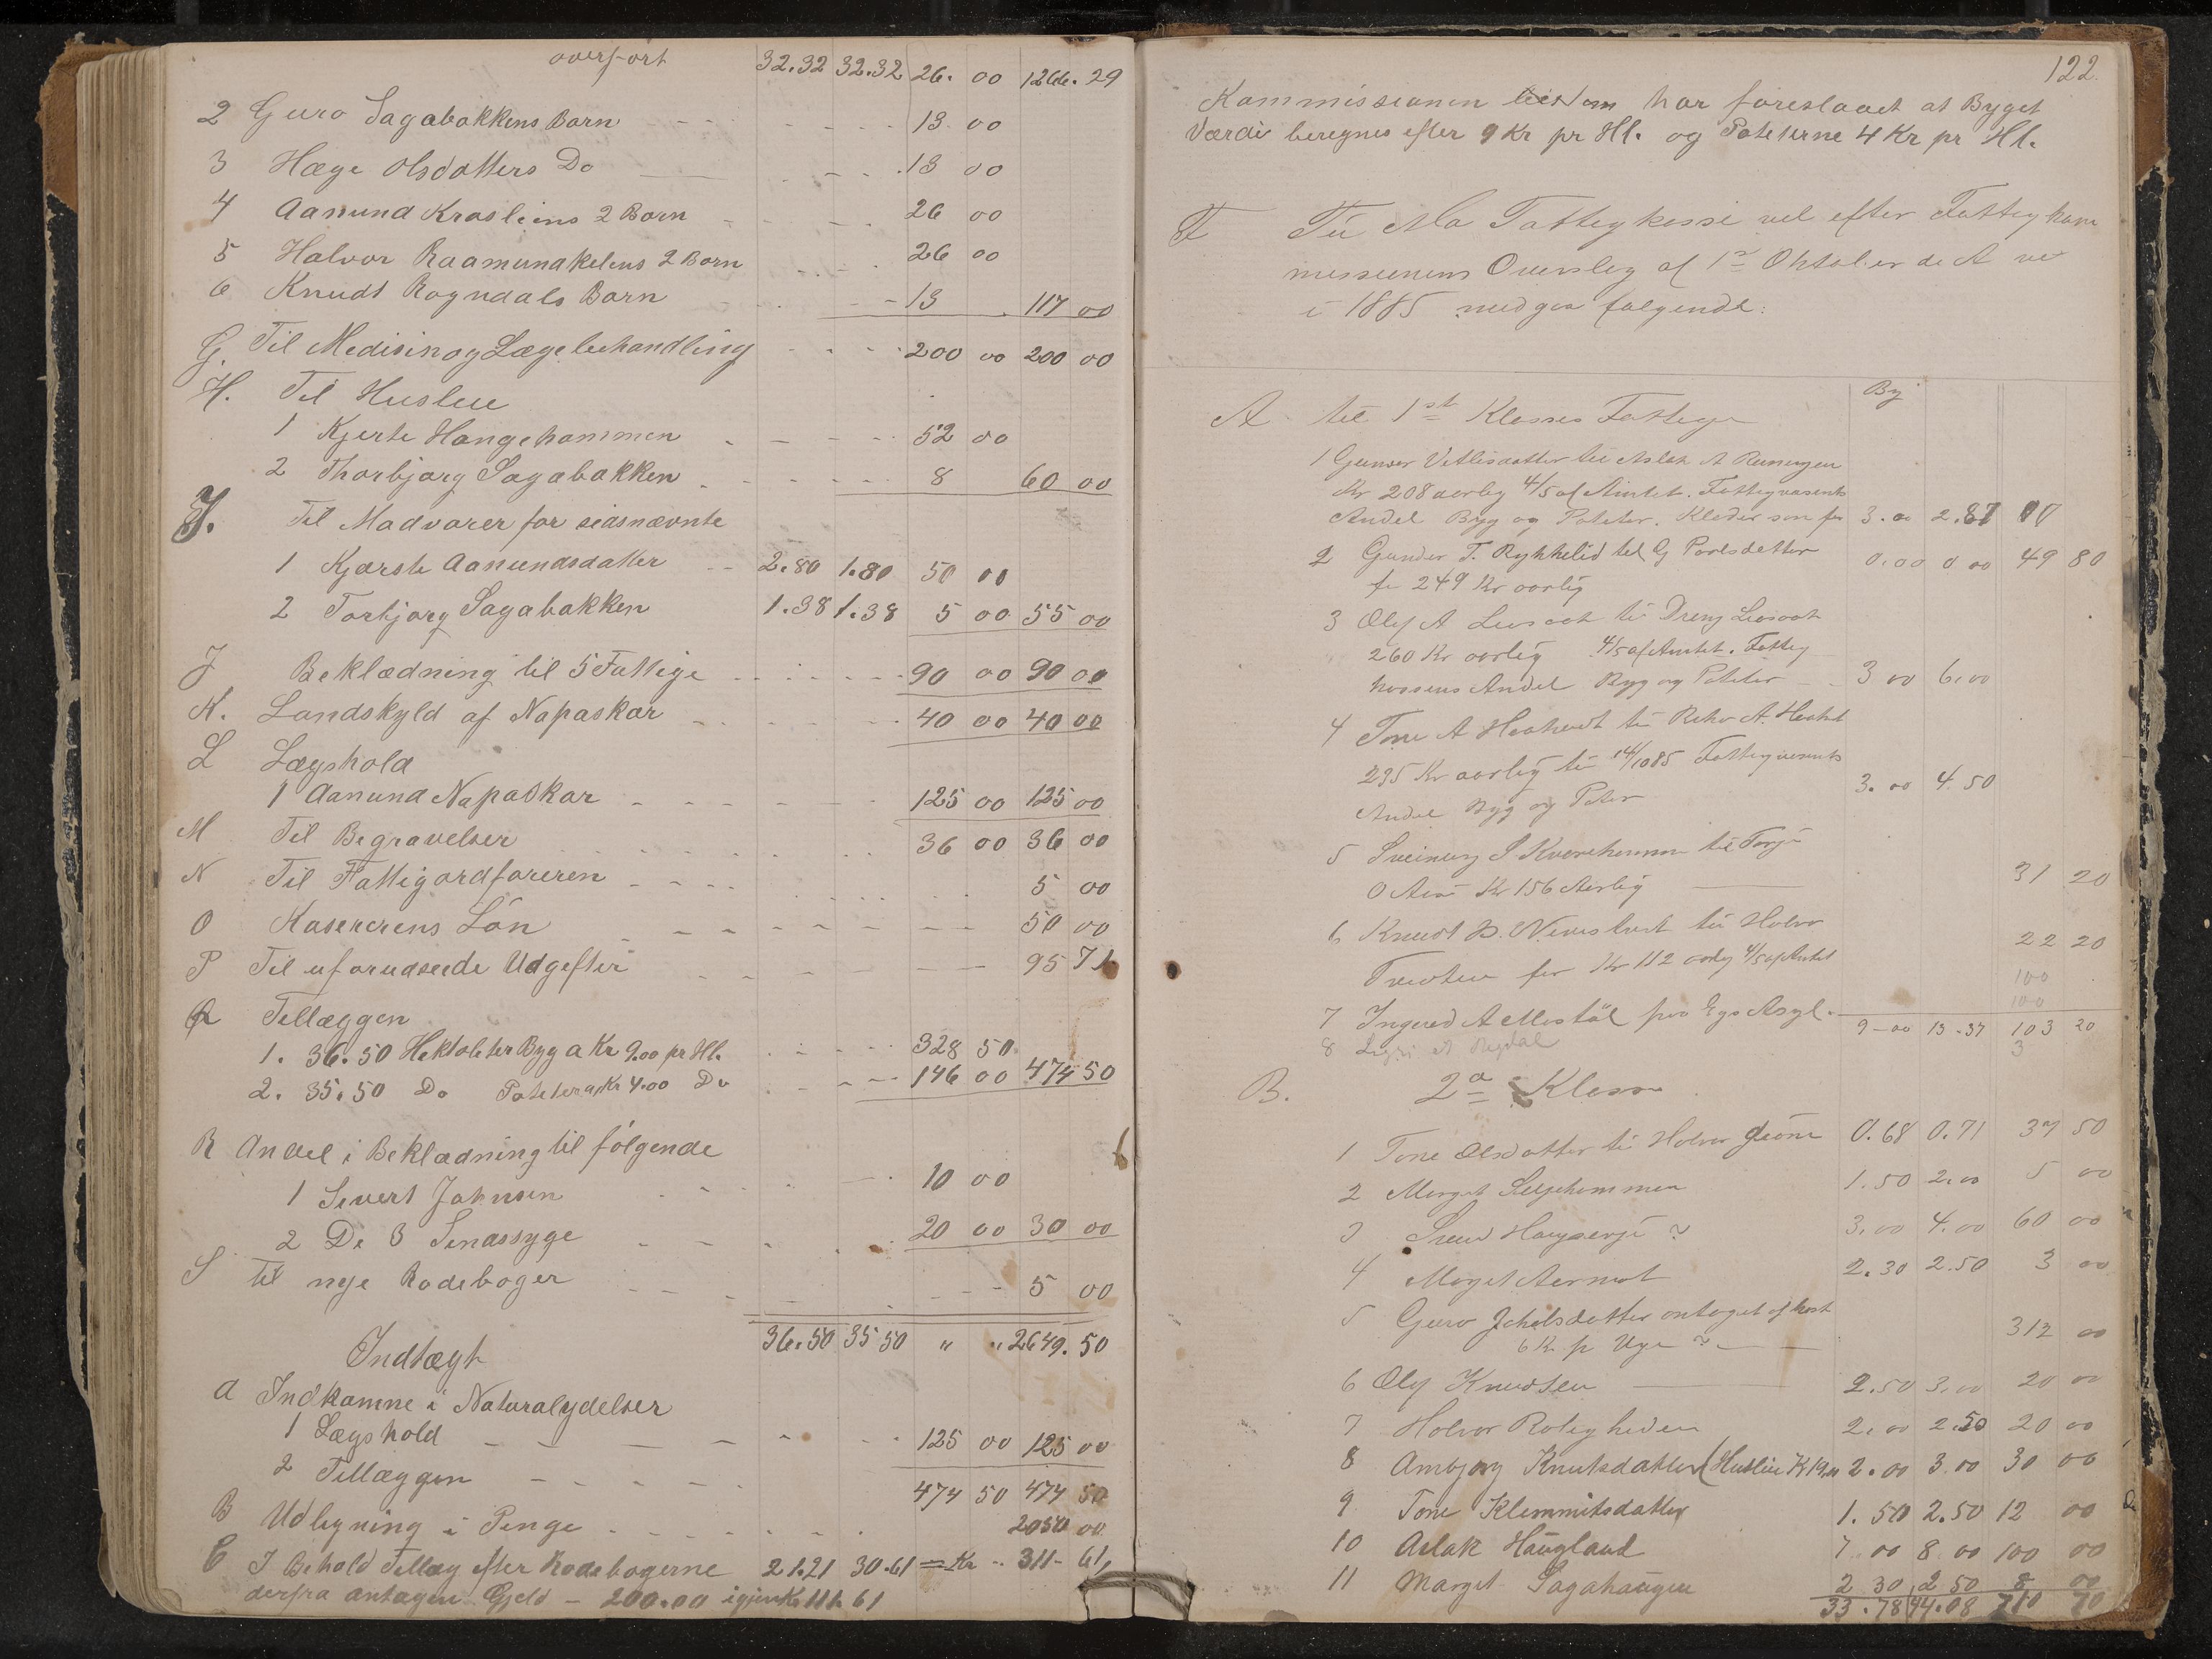 overført 32.32 32.32 26. 00 1266. 29
2 Guro Sagabakkens Barn 13 00
3 Hæge Olsdatters Do 13 00
4 Aanund Krosliens 2 Børn 26 00
5 Halvor Raamunakelens 2 Børn 26 00
6 Knudt Rogndals Barn 13 117 00
G. Til Medisin og Lægebehandling 200 00 200 00
H. Til Husleie
1 Kjerte Hangehammen 52 00
2 Thorbjørg Sagabakken 8 60 00
I. Til Madvarer for sidsnævnte
1 Kjærste Aanundsdatter 2.80 1.80 50 00
2 Torbjørg Sagabakken 1.38 1.38 5 00 55 00
J Beklædning til 5 Fattige 90 00 90 00
K. Landskyld af Napaskar 40 00 40 00
L Lægshold
1 Aanund Napaskar 125 00 125 00
M Til Begravelser 36 00 36 00
N Til Fattigordføreren 5 00
O Kasererens Løn 50 00
P Til uforudseede Udgifter 95 71
Q Tillæggen
1. 36.50 Hektoleter Byg a Kr 9.00 pr Hl. 328 50
2. 35.50 Do Poteter a Kr 4.00 Do 146 00 474 50
R Andel i Beklædning til følgende
1 Sivert Johnsen 10 00
2 De 3 Sinassyge 20 00 30 00
S til nye Rodebøger 5 00
36.50 35 50 " " 2649.50
Indtægt
a Indkomne i Naturalydelser
1 Lægshold 125 00 125 00
2 Tillæggen 474 50 474 50
B Udligning i Penge 2050 00
C I Behold Tillæg efter Rodebøgerne 21.21 30.61 = Kr 311-61,
derfra antagen Gjeld - 200.00 igjen Kr 111.61
122.
Kommissionen har foreslaaet at Byget
Værdi beregnes efter 9 Kr pr Hl. og Poteterne 4 Kr pr Hl.
Til Mo Fattigkasse vil efter Fattigkom
missionens Overslag af 1ste Oktober d. A
i 1885 medgaa følgende:
By
A til 1st Klasses Fattige
1 Gunver Vetlesdatter til Aslak A
Kr 208 aarlig 4/5 af Amtet. Fattigvæsents
Andel Byg og Poteter. Klæder som før 3.00 2.87
2 Gunder T. Rykkelid til G Povlsdatter 0.00 0 00 49 80
for 249 Kr aarlig
3 Olaf A til
260 Kr aarlig 4/5 af Amtet. Fattig
kassens Andel Byg og Poteter 3 00 6.00
4 Tone A til A.
295 Kr aarlig til 14/10 85 Fattigvæsents
Andel Byg og Poteter 3.00 4.50
5 Sveinung S Kvernhommen til Torju
O Kr 156 Aarlig 31 20
6 Knudt til Halvor
for Kr 112 aarlig 4/5 af Amtet 22 20
100
100
7 Ingered A paa Egs Asyl. 9-00 13-37 103 20
8 3
B. 2a Klasse
1 Tone Olsdatter til Halvor 0.68 0.71 37 50
2 Marget 1.50 2.00 5 00
3 3.00 4.00 60 00
4 Marget 2.30 2.50 3 00
5 Guro antaget af
6 Kr pr Uge 312 00
6 Olaf Knudsen 2.50 3.00 20 00
7 Halvor Roligheden 2.00 2.50 20 00
8 Ambjørg Knutsdatter (Husleie Kr 2.00 3.00 30 00
9 Tone Klemmitsdatter 1.50 2.50 12 00
10 Aslak Haugland 7.00 8.00 100 00
11 Marget Sagahaugen 2 30 2 50 8 00
33.78 44.08 710 70